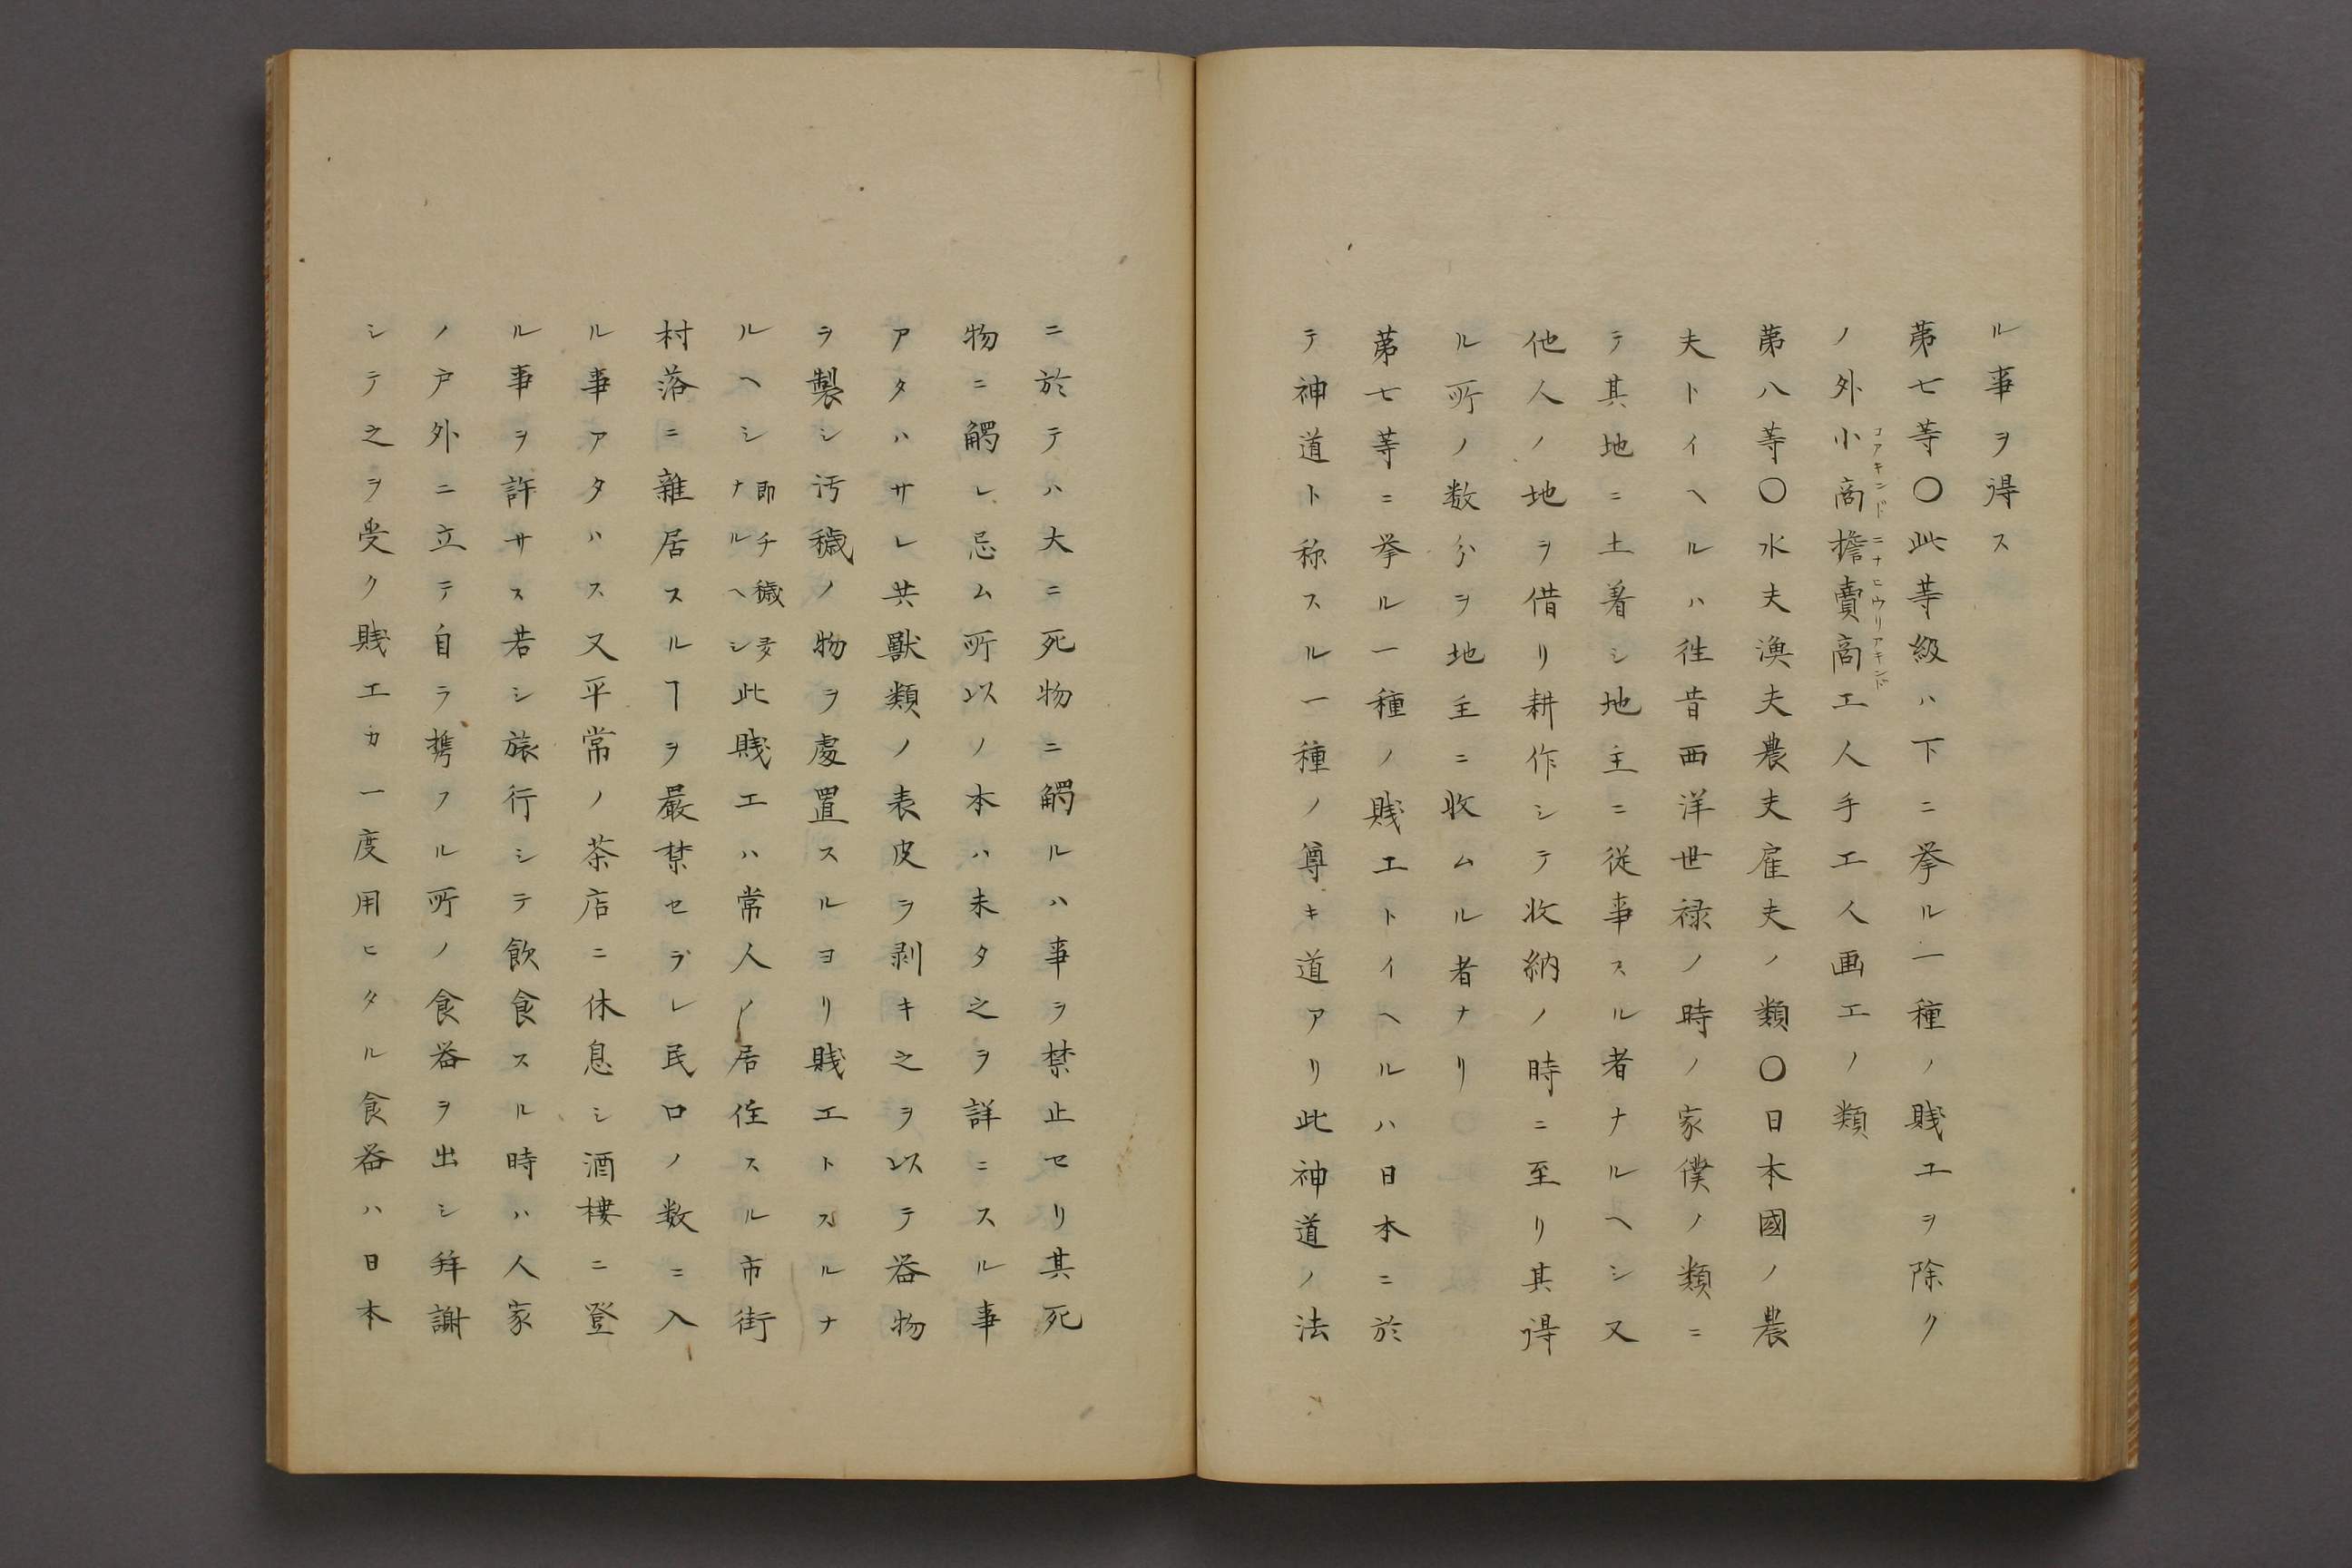 ル事ヲ得ス
第七等〇此等級ハ下ニ挙ル一種ノ賤工ヲ除ク
ノ外小商擔賣商工人手工人画工ノ類
コアキンド ニナヒウリアキンド
第八等〇水夫漁夫農夫雇夫ノ類〇日本國ノ農
夫トイヘルハ徃昔西洋世禄ノ時ノ家僕ノ類ニ
テ其地ニ土着シ地主ニ従事スル者ナルヘシ又
他人ノ地ヲ借リ耕作シテ收納ノ時ニ至リ其得
ル所ノ数分ヲ地主ニ收ムル者ナリ
第七等ニ挙ル一種ノ賤工トイヘルハ日本ニ於
テ神道ト称スル一種ノ尊キ道アリ此神道ノ法
ニ於テハ大ニ死物ニ觸ルハ事ヲ禁止セリ其死
物ニ觸レ忌ム所以ノ本ハ未タ之ヲ詳ニスル事
アタハサレ共獸類ノ表皮ヲ剥キ之ヲ以テ器物
ヲ製シ汚穢ノ物ヲ處置スルヨリ賤工トスルナ
ルヘシ即チ穢多ナルヘシ此賤工ハ常人ノ居住スル市街
村落ニ雜居スルヿヲ嚴禁セラレ民口ノ数ニ入
ル事アタハス又平常ノ茶店ニ休息シ酒樓ニ登
ル事ヲ許サス若シ旅行シテ飲食スル時ハ人家
ノ戸外ニ立テ自ラ携フル所ノ食器ヲ出シ拜謝
シテ之ヲ受ク賤工カ一度用ヒタル食器ハ日本